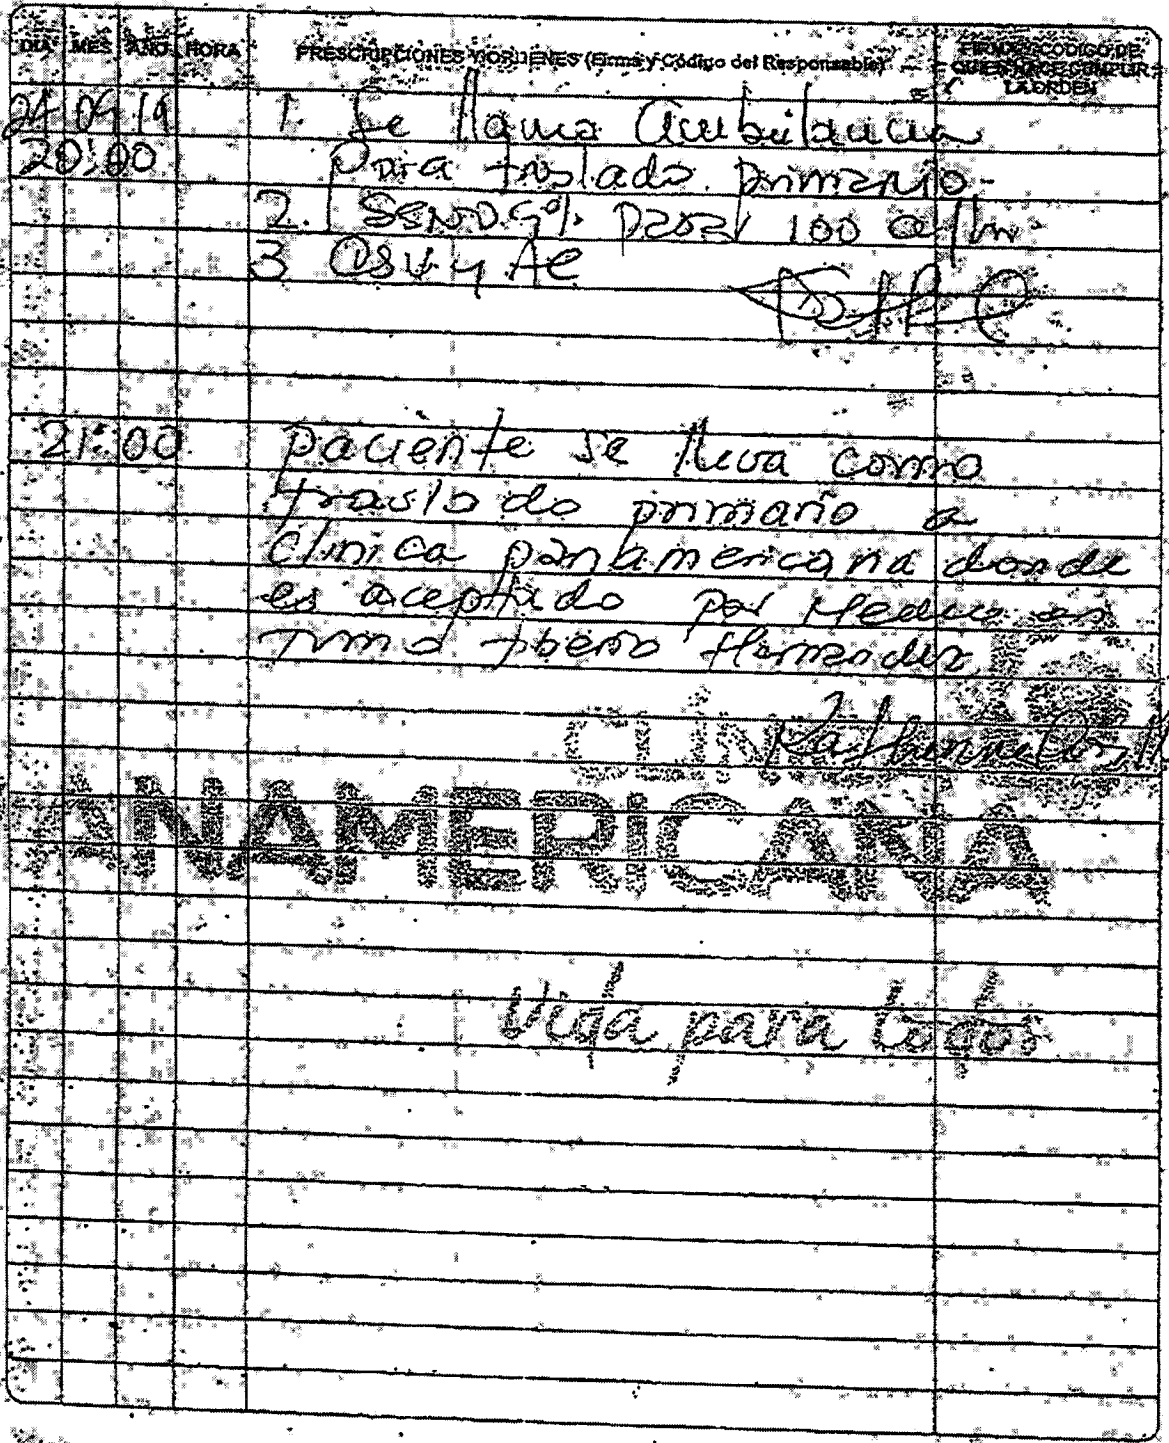 DIA MES AÑO HORA PRESCRIPCIONES Y ORDENES (Firma y Código del Responsable) FIRMA Y CODIGO DE
QUIEN HACE CUMPLIR
LA ORDEN
24 09 19 1. Se llama Ambulancia
20:00 Para traslado primario.
2. SSN 0.9% pasar 100 cc/hr
3 CSV y AC
21:00 paciente se lleva como
traslado primario a
Clinica panamericana donde
es aceptado por Medico en
turno Hernandez
CLÍNICA
PANAMERICANA
Vida para todos